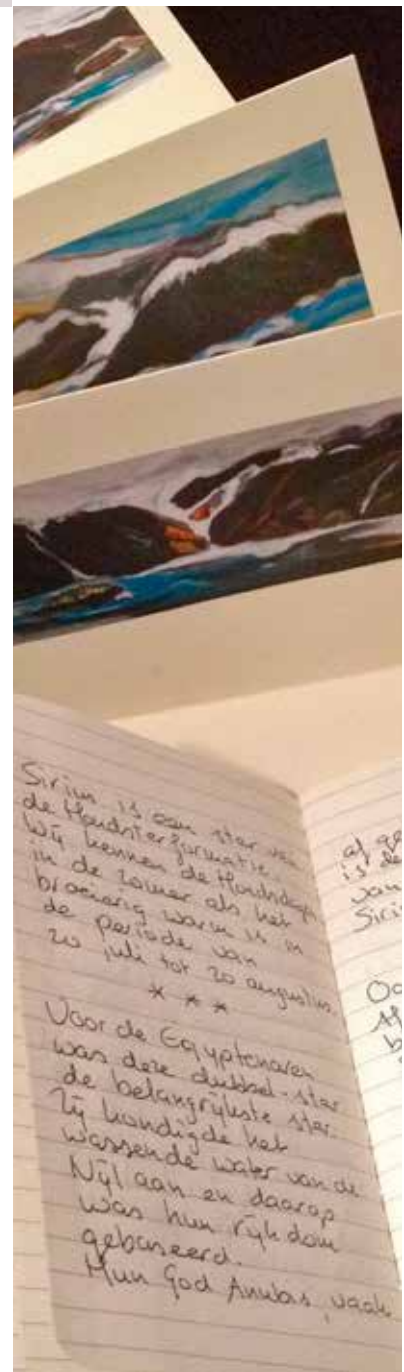 Sirius is een ster van
de Hondsterformatie.
Wij kennen de Hondsdagen
in de zomer als het
broeierig warm is in
de periode van
20 juli tot 20 augustus.
* * *
Voor de Egyptenaren
was deze dubbel-ster
de belangrijkste ster.
Zij kondigde het
wassende water van de
Nijl aan en daarop
was hun rijkdom
gebaseerd.
Hun God Anubis, vaak
af ge
is de
van
Siri